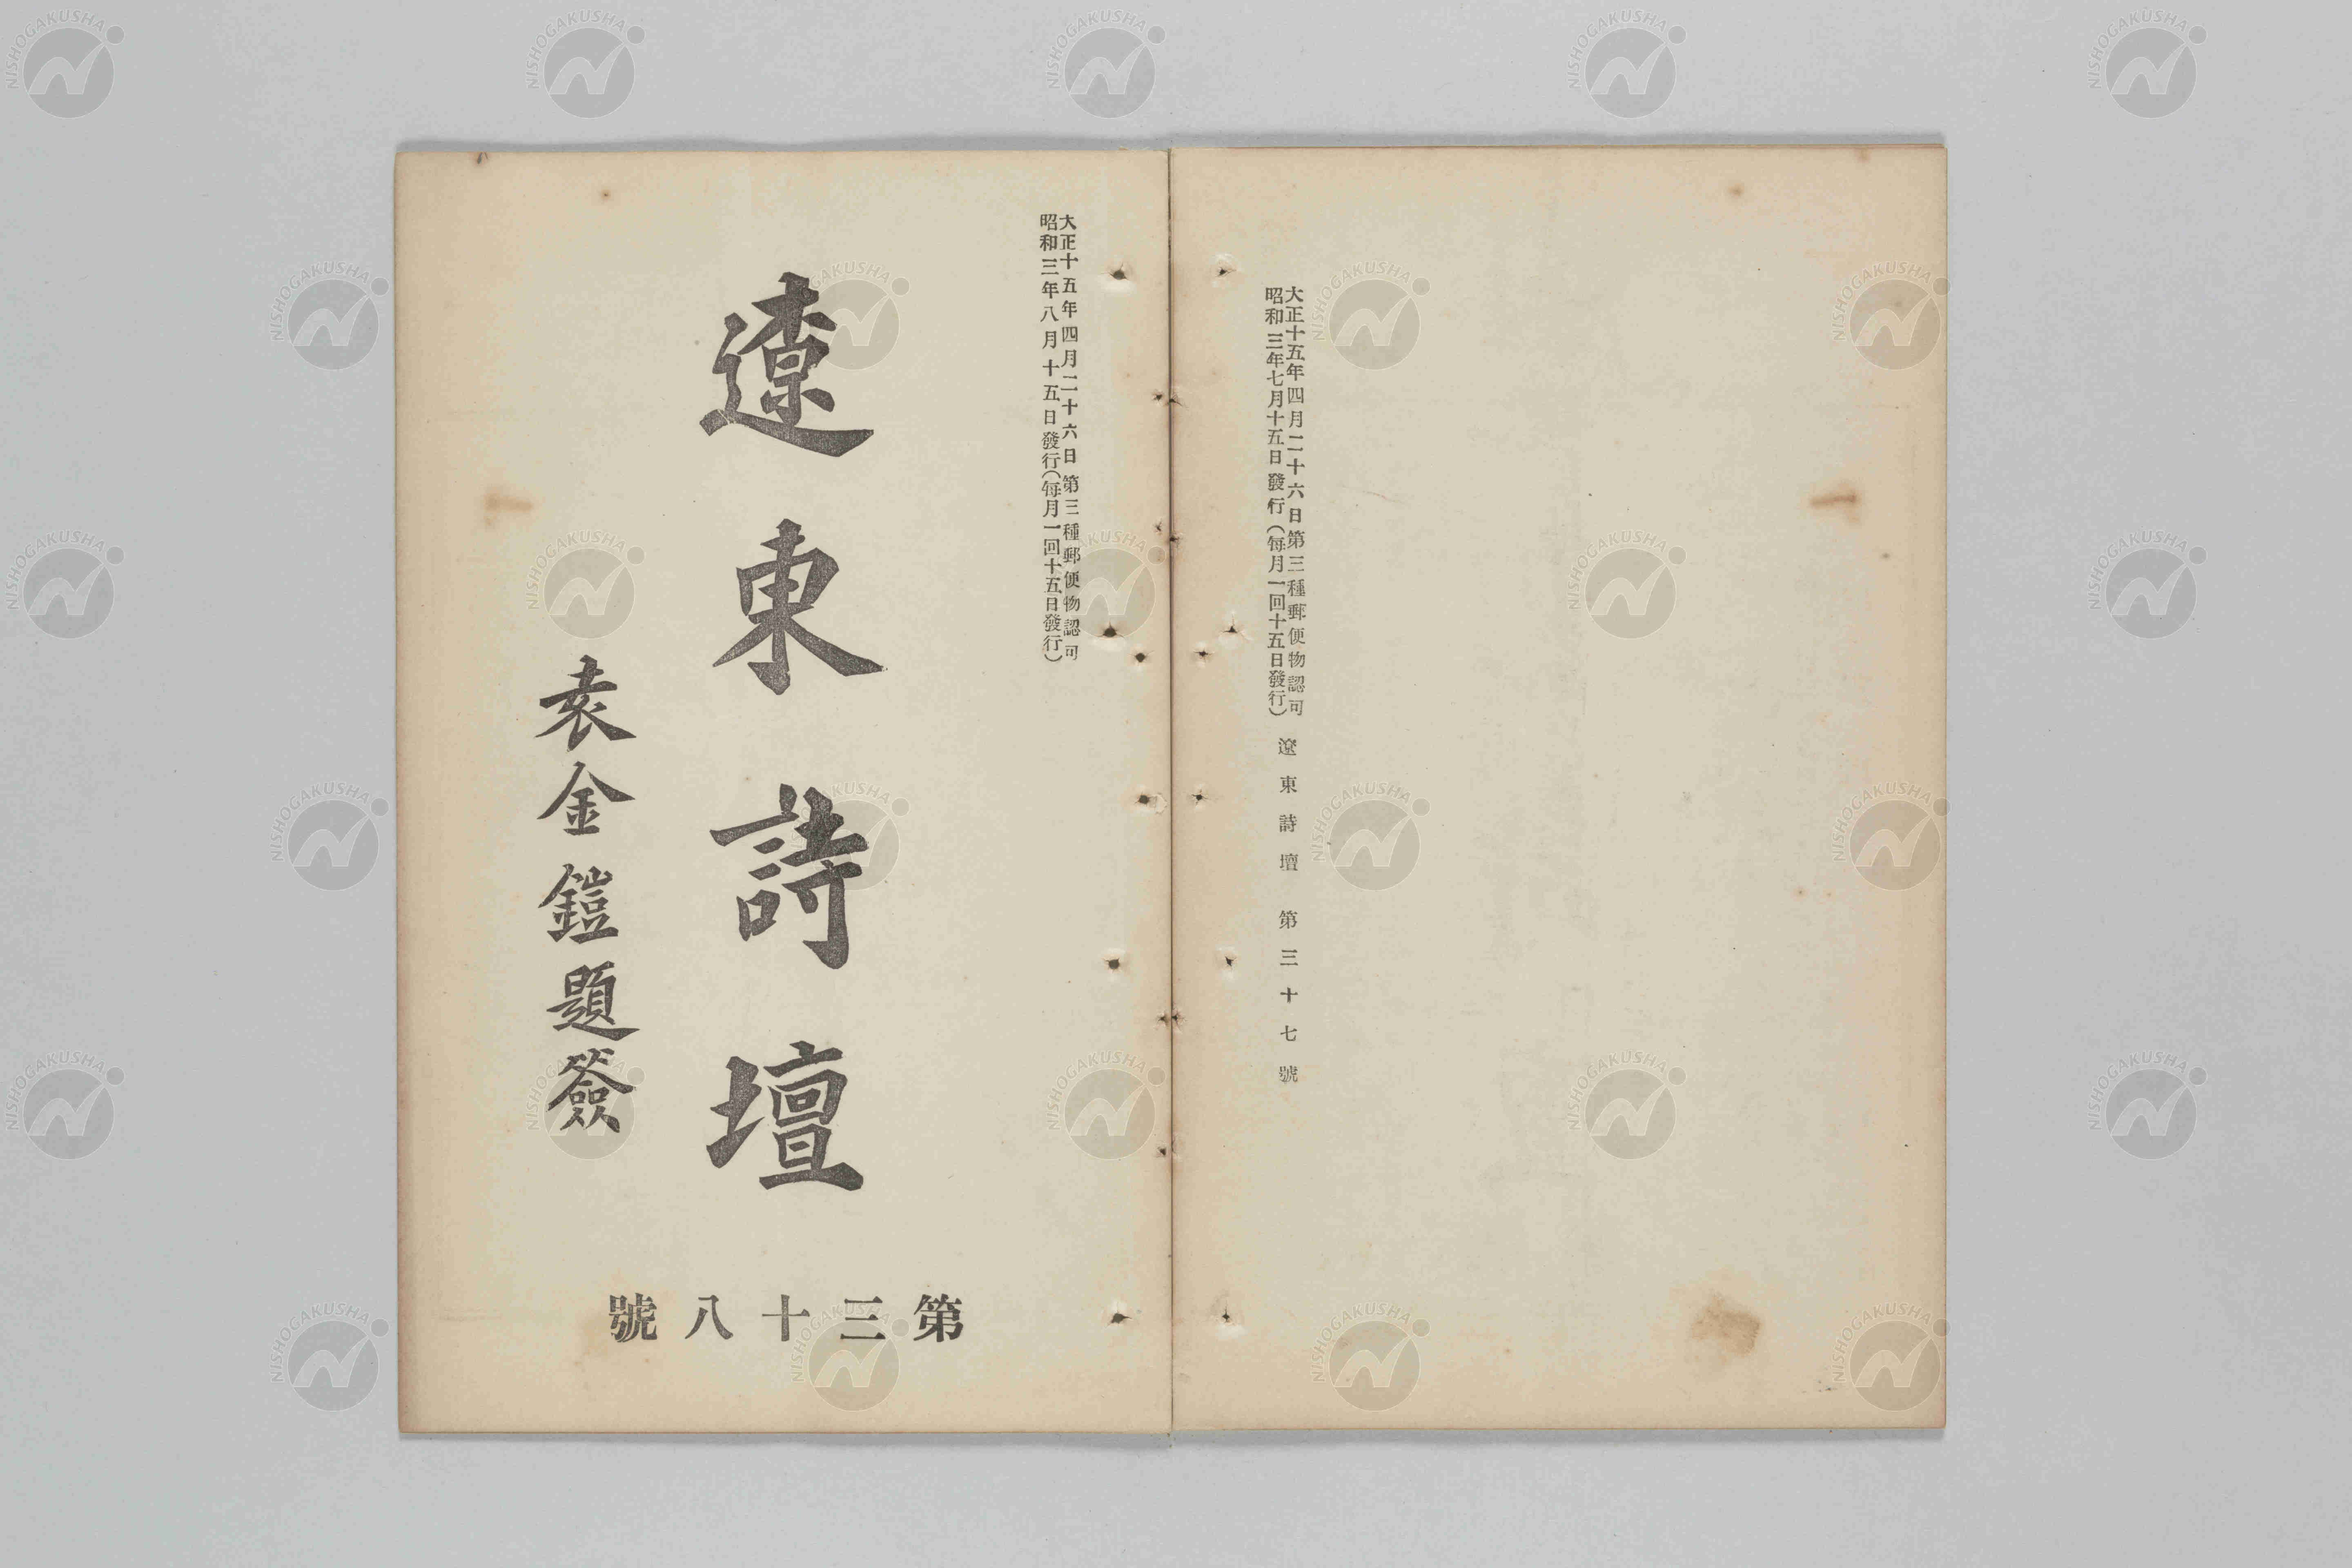 大正十五年四月二十六日第三種郵便物認可
昭和三年七月十五日發行(每月一回十五日發行)
遼東詩壇 第三十七號
大正十五年四月二十六日第三種郵便物認可
昭和三年八月十五日發行(每月一回十五日發行)
遼東詩壇
袁金鎧題簽
第三十八號
NISHOGAKUSHA